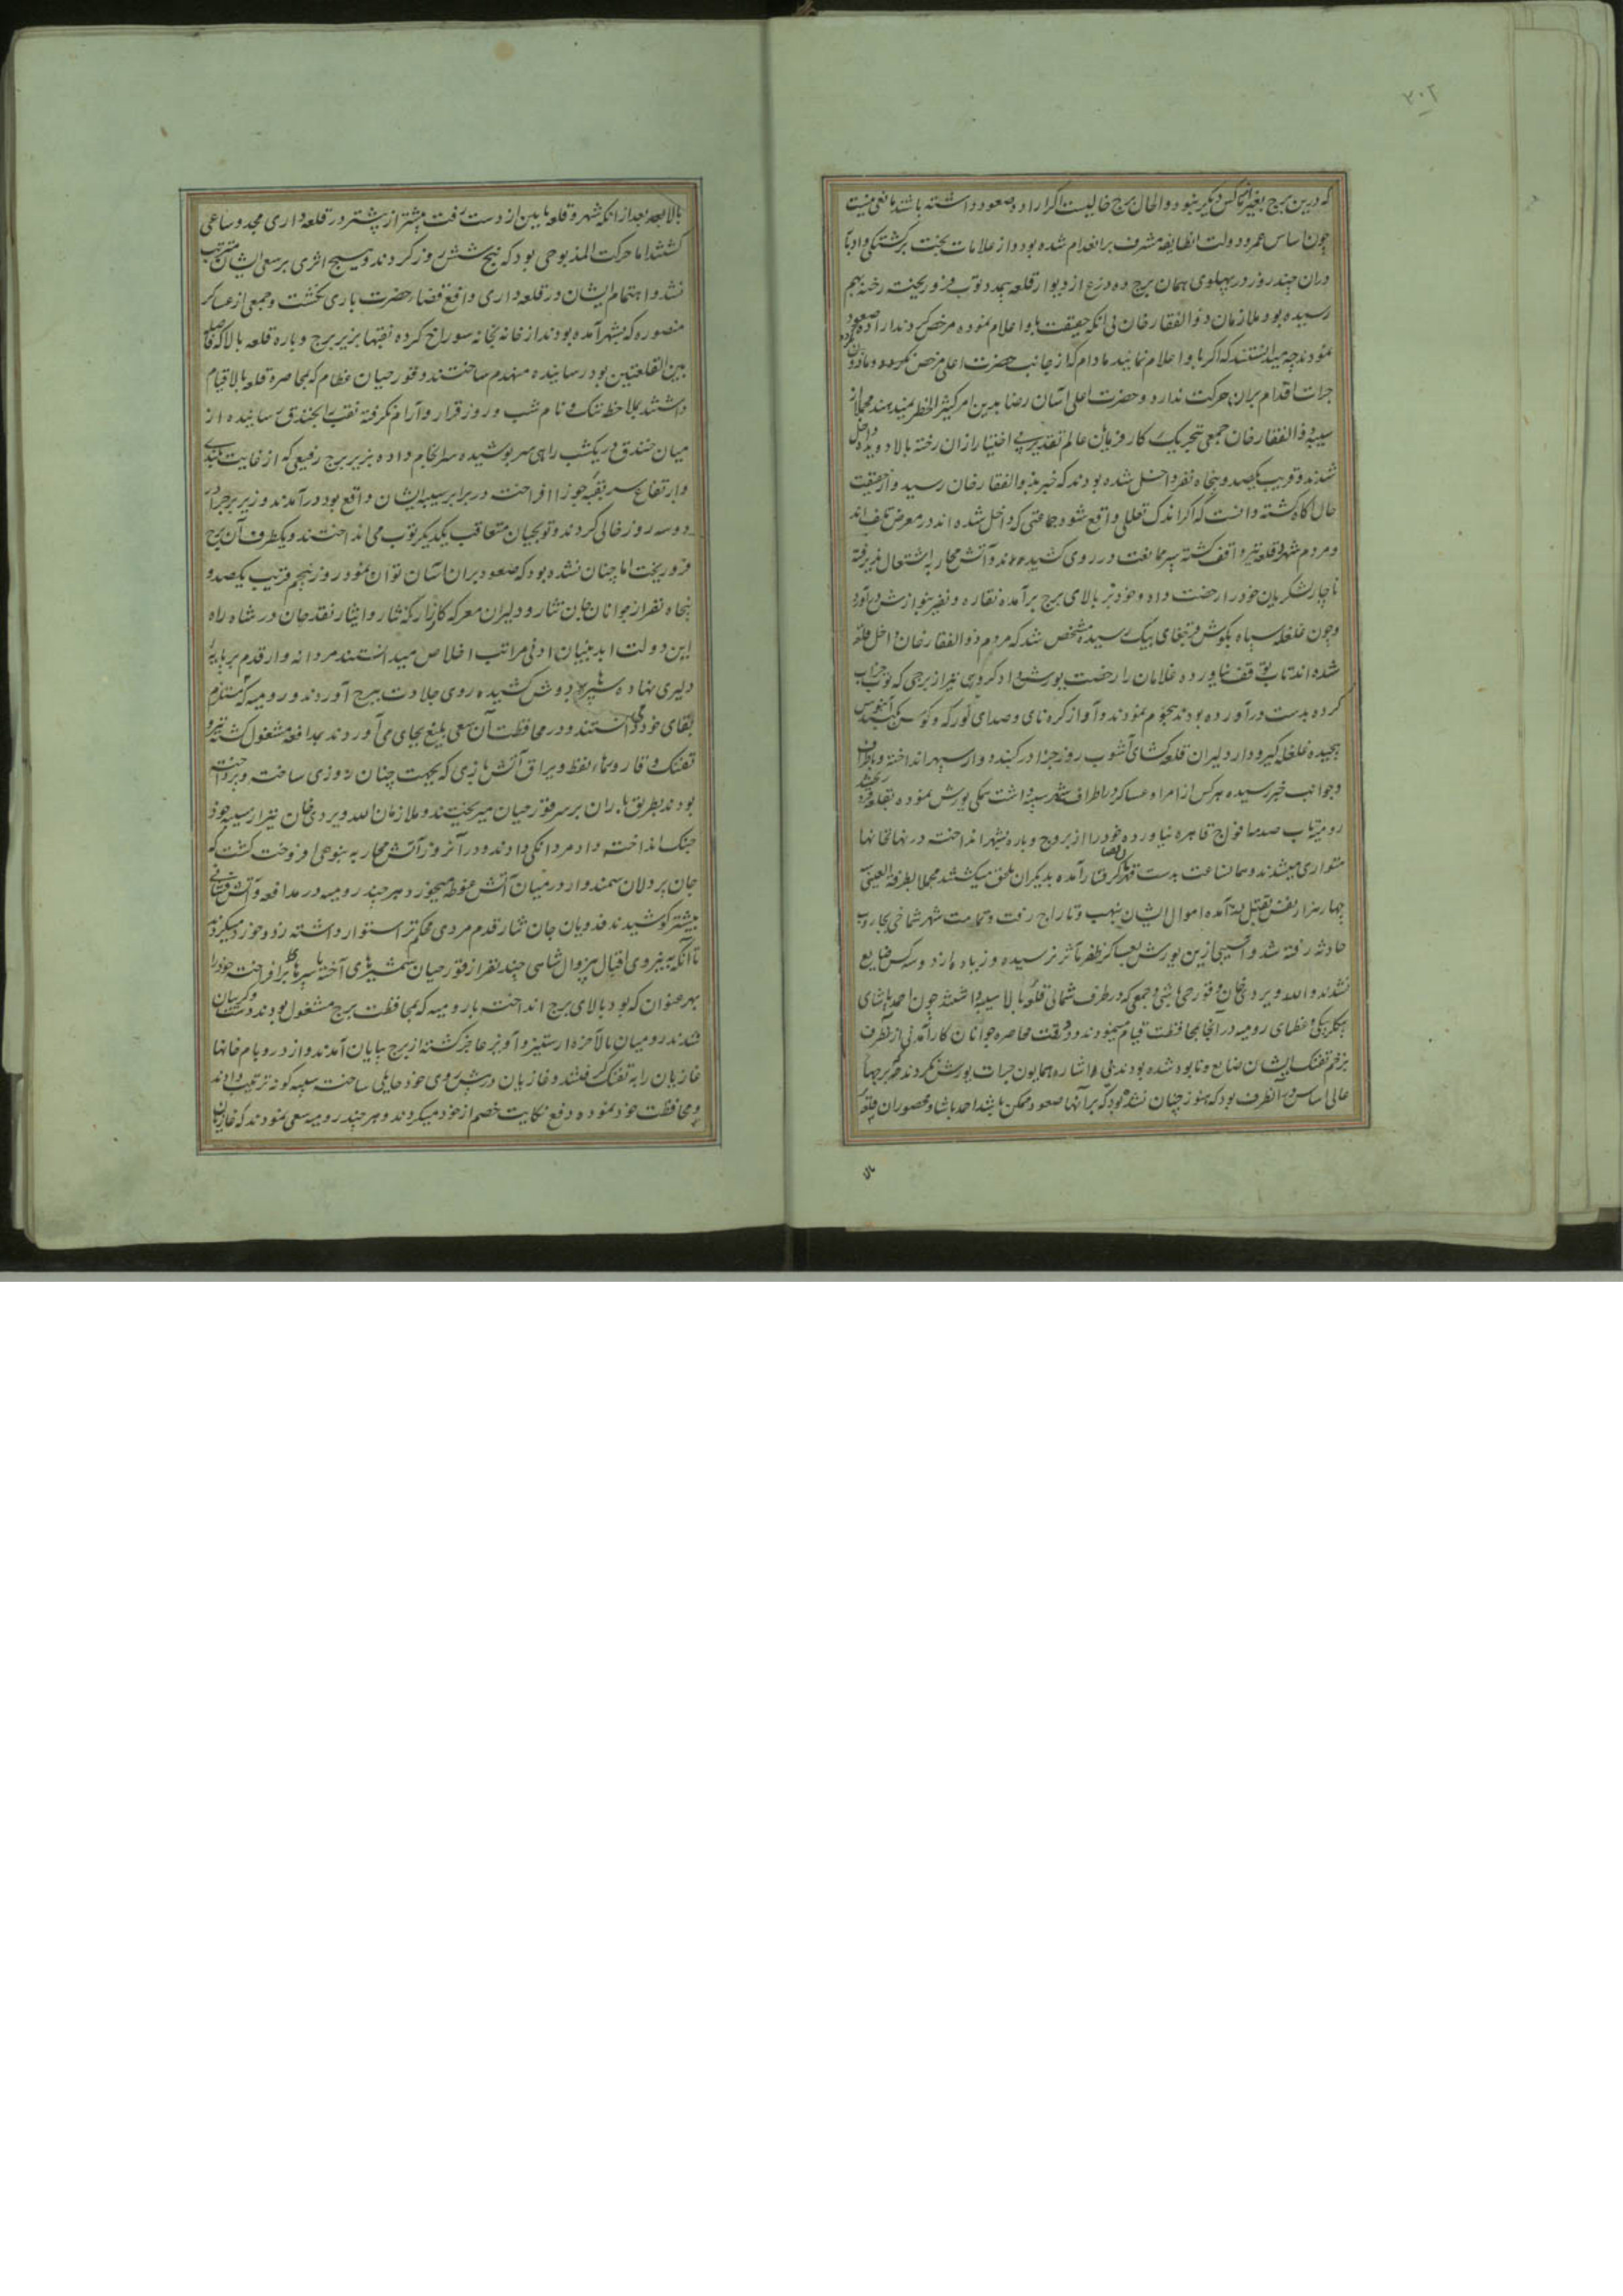 ۳۰۲
که درین برج بغیر از ناکس دیگر نبود و الحال برج خالیست اگر اراده صعود داشته باشند مانعی نیست
چون اساس عمر و دولت انطایفه مشرف بر انهدام شده بود و از علامات بخت برگشتگی و ادبار
دران چند روز در پهلوی همان برج ده ذرع از دیوار قلعه بمدد توپ فرو ریخته رخنه بهم
رسیده بود ملازمان ذوالفقار خان بی انکه حقیقت باو اعلام نموده مرخص کردند اراده صعود
نمودند چه میدانستند که اگر باو اعلام نمایند مادام که از جانب حضرت اعلی مرخص نگردد و ماذون
جرات اقدام بران حرکت ندارد و حضرت اعلی آسان رضا بدین امر کثیر الخطر نمیدهند مجملا از
سیبه ذوالفقار خان جمعی بتحریک کارفرمایان عالم تقدیر بی اختیار ازان رخنه بالا دویده داخل
شدند و قریب یکصد و پنجاه نفر داخل شده بودند که خبر بذوالفقار خان رسید و از حقیقت
حال آگاه گشته دانست که اگر اندک تعللی واقع شود جماعتی که داخل شده اند در معرض تلف اند
و مردم شهر و قلعه نیز واقف گشته سپر ممانعت در روی کشیده اند و آتش محاربه اشتعال پذیرفته
ناچار لشکریان خود را رخصت داد و خود نیز بالای برج برآمده نقاره و نفیر بنوازش درآورد
و چون غلغله سپاه بگوش قرچغای بیک رسیده مشخص شد که مردم ذوالفقار خان داخل قلعه
شده اند تاب توقف نیاورده غلامان را رخصت یورش داد گروهی نیز از برجی که توپ خراب
کرده بدست درآورده بودند هجوم نمودند و آواز کره نای و صدای کورکه و کوس در گنبد آبنوس
پیچیده غلغله گیرودار دلیران قلعه گشای آشوب روز جزا در گنبد دوار سپهر انداخته و باطراف
و جوانب خبر رسیده هر کس از امرا و عساکر در اطراف شهر سیبه داشت همگی یورش نموده بقلعه فرو ریختند
رومیه تاب صدمه افواج قاهره نیاورده خود را از بروج و باره بشهر انداخته در نهانخانها
متواری میشدند و همان ساعت بدست قهر گرفتار آمده بدیگران ملحق میگشتند مجملا بطرفة العینی
چهار هزار نفس بقتل آمده اموال ایشان بنهب و تاراج رفت و تمامت شهر شماخی بجاروب
حادثه رفته شد و آسیبی ازین یورش بعساکر ظفر مآثر نرسیده و زیاده از دو سه کس ضایع
نشدند و الله ویردی خان و قورچی باشی و جمعی که در طرف شمالی قلعه بالا سیبه داشتند چون احمد پاشای
بیگلربیگی و عظمای رومیه در انجا بمحافظت قیام مینمودند و در وقت محاصره جوانان کارآمدنی ازین طرف
بزخم تفنگ ایشان ضایع و نابود شده بودند بی اشاره همایون جرات یورش نکردند و برجهای
عالی اساس آنطرف بود که هنوز چنان نشده بود که برآنها صعود ممکن باشد احمد پاشا و محصوران قلعه
بالا
بالا بعد از انکه شهر و قلعه پایین از دست رفت بیشتر از پیشتر در قلعه داری مجد و ساعی
گشتند اما حرکت المذبوحی بود که پنج شش روز کردند و هیچ اثری بر سعی ایشان مترتب
نشد و اهتمام ایشان در قلعه داری دافع قضای حضرت باری نگشت و جمعی از عساکر
منصوره که بشهر آمده بودند از خانه بخانه سوراخ کرده نقبها بزیر برج و باره قلعه بالا که فاصله
بین القلعتین بود رسانیده منهدم ساختند و قورچیان عظام که بمحاصره قلعه بالا قیام
داشتند بملاحظه ننگ و نام شب و روز قرار و آرام نگرفته نقب بخندق رسانیده از
میان خندق در یکشب راهی سرپوشیده سرانجام داده بزیر برج رفیعی که از غایت بلندی
و ارتفاع سر بقبه جوزا افراخته در برابر سیبه ایشان واقع بود درآمدند و زیر برج را در
دو سه روز خالی کردند و توپچیان متعاقب یکدیگر توپ می انداختند و یکطرف آن برج
فرو ریخت اما چنان نشده بود که صعود بران آسان توان نمود روز پنجم قریب یکصد و
پنجاه نفر از جوانان جان نثار و دلیران معرکه کارزار که نثار و ایثار نقد جان در شاه راه
این دولت ابد بنیان ادنی مراتب اخلاص میدانستند مردانه وار قدم بر پایه
دلیری نهاده سپرها بدوش کشیده روی جلادت ببرج آوردند و رومیه که مستلزم
بقای خود میدانستند و در محافظت آن سعی بلیغ بجای می آوردند بمدافعه مشغول گشته تیر و
تفنگ و قاروره های نفط و یراق آتش بازی که بجهت چنان روزی ساخته و پرداخته
بودند بطریق باران بر سر قورچیان میریختند و ملازمان الله ویردی خان نیز از سیبه خود
جنگ انداخته داد مردانگی دادند و در آنروز آتش محاربه بنوعی افروخته گشت که
جان پردلان سمندوار در میان آتش غوطه میخورد و هر چند رومیه در مدافعه و آتش فشانی
بیشتر کوشیدند فدویان جان نثار قدم مردی محکم تر استوار داشته زد و خورد میکردند
تا آنکه به نیروی اقبال بیزوال شاهی چند نفر از قورچیان شمشیرهای آخته با سپرها برافراخته خود را
بهر عنوان که بود بالای برج انداخته با رومیه که بمحافظت برج مشغول بودند دست و گریبان
شدند رومیان بالآخره از ستیز و آویز عاجز گشته از برج بپایان آمدند و از در و بام خانها
غازیان را به تفنگ گرفتند و غازیان در پیش روی خود حایلی ساخته سیبه گونه ترتیب دادند
و محافظت خود نموده دفع نکایت خصم از خود میکردند و هر چند رومیه سعی نمودند که غازیان